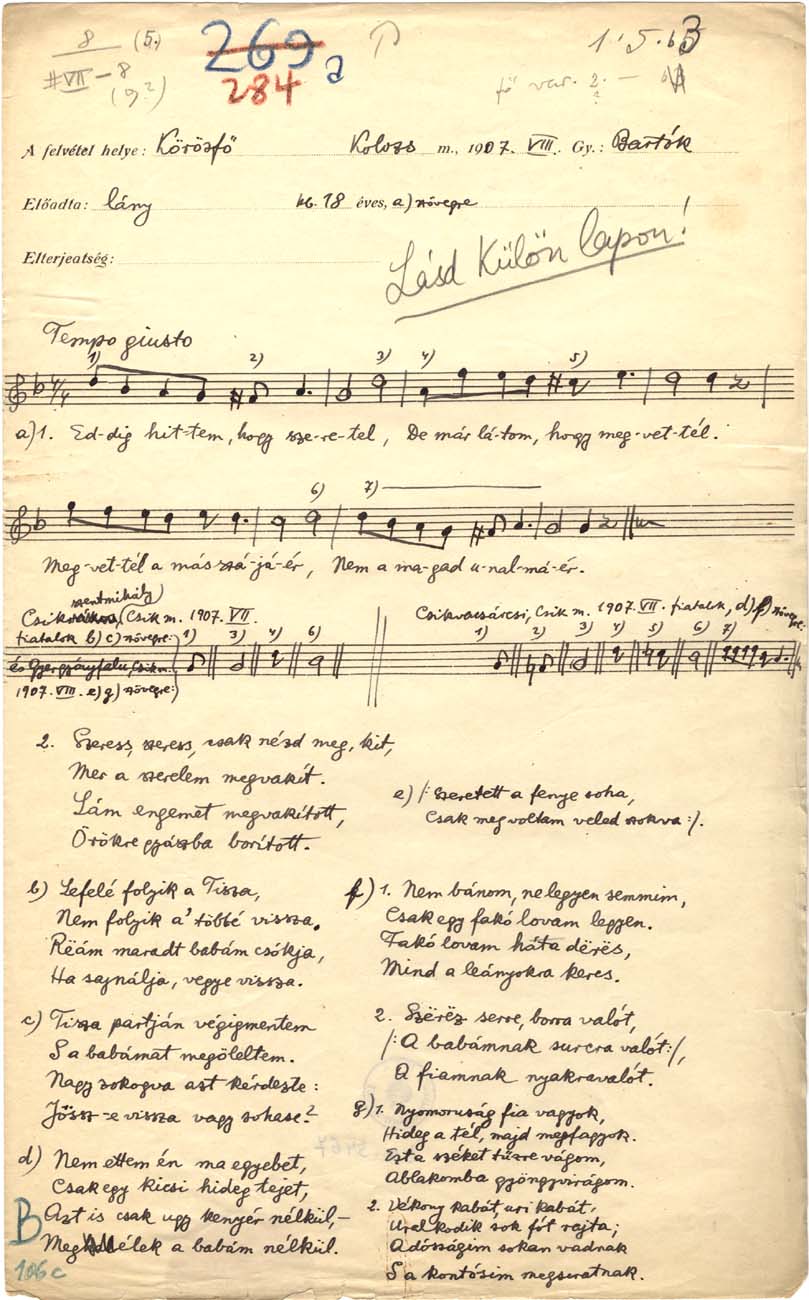 8 (5.) 269 a 1.5.63
#VII-8 284 fő var. 2.
(9?)
A felvétel helye: Körösfő Kolozs m., 1907. VIII. Gy.: Bartók
Előadta: lány kb. 18 éves, a) szövegre
Elterjedtség:
Lásd Külön lapon!
Tempo giusto
1) 2) 3) 4) 5)
a) 1. Ed-dig hit-tem, hogy sze-re-tel, De már lá-tom, hogy meg-vet-tél.
6) 7)
Meg-vet-tél a más szá-já-ér, Nem a ma-gad u-nal-má-ér.
szentmihály)
Csik Csik m. 1907. VII.
fiatalok b) c) szövegre;
és Gyergyóújfalu, Csik m.
1907. VIII. e) g) szövegre:)
1) 3) 4) 6)
Csikvacsárcsi, Csik m. 1907. VII. fiatalok, d) f) szövegre.
1) 2) 3) 4) 5) 6) 7)
2. Szeress, szeress, csak nézd meg, kit,
Mer a szerelem megvakít.
Lám engemet megvakított,
Örökre gyászba borított.
b) Lefelé folyik a Tisza,
Nem folyik a' többé vissza.
Rëám maradt babám csókja,
Ha sajnálja, vegye vissza.
c) Tisza partján végigmentem
S a babámat megöleltem.
Nagy zokogva azt kérdezte:
Jössz-e vissza vagy sohase?
d) Nem ettem én ma egyebet,
Csak egy kicsi hideg tejet,
Azt is csak ugy kenyér nélkül,—
Meg élek a babám nélkül.
B
106c
e) /: Szeretett a fenye soha,
Csak meg voltam veled szokva :/.
f) 1. Nem bánom, ne legyen semmim,
Csak egy fakó lovam legyen.
Fakó lovam háta dërës,
Mind a leányokra keres.
2. Szërëz serre, borra valót,
/: A babámnak surcra valót :/,
A fiamnak nyakravalót.
g) 1. Nyomoruság fia vagyok,
Hideg a tél, majd megfagyok.
Ezt a széket tüzre vágom,
Ablakomba gyöngyvirágom.
2. Vékony kabát, uri kabát,
Uralkodik sok fót rajta;
Adósságim sokan vadnak
S a kontósim megsiratnak.